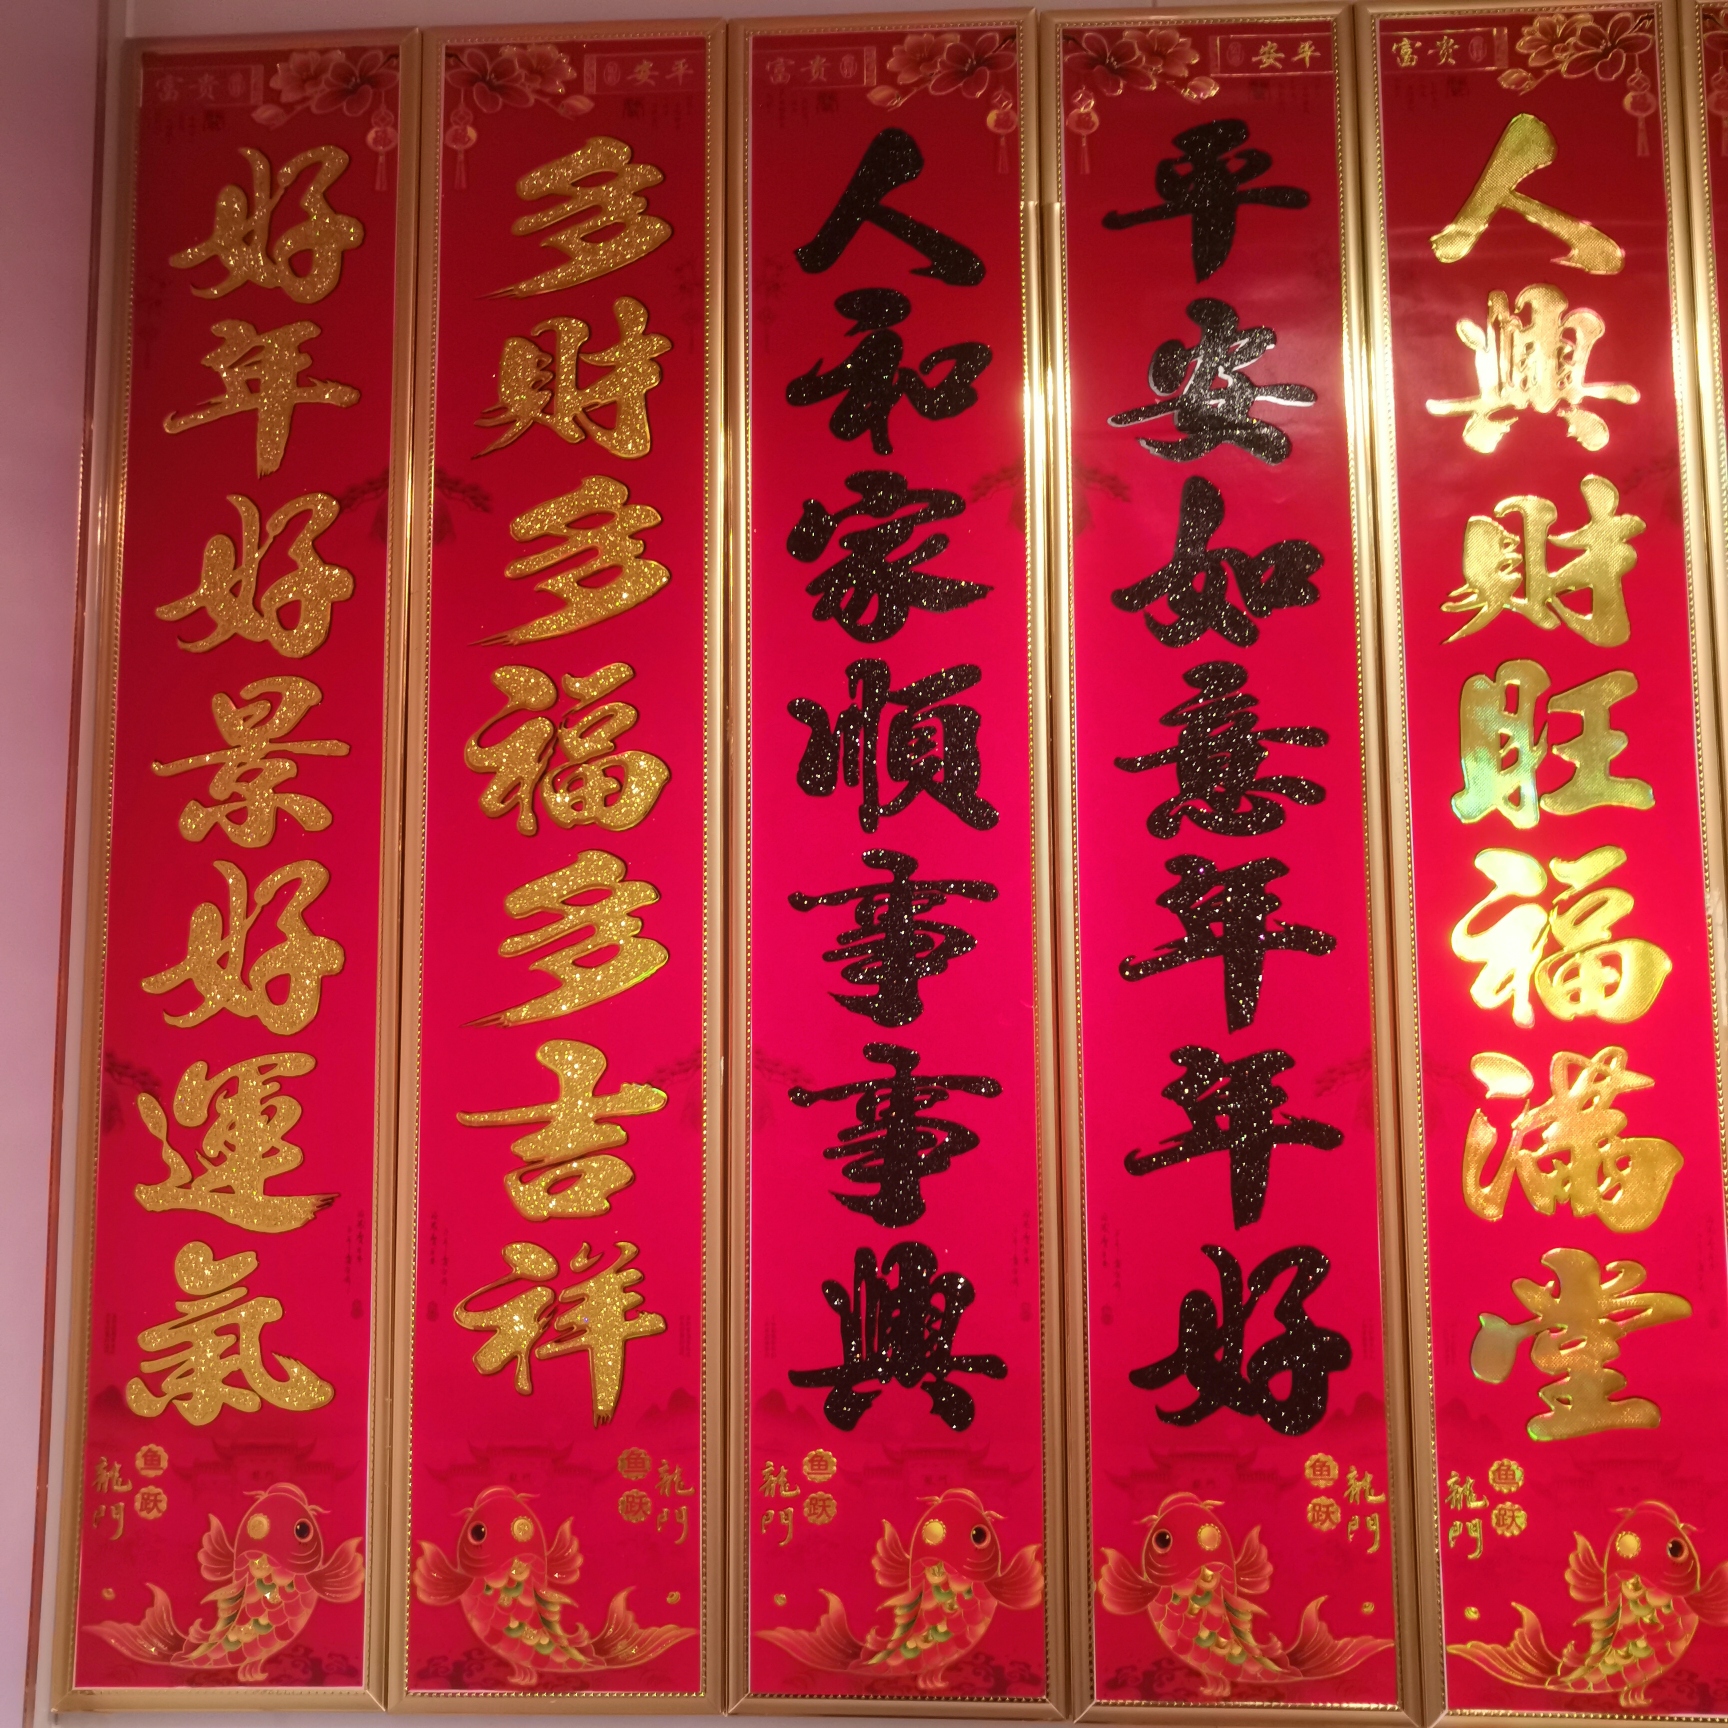 富贵
好年好景好運氣
龍門
鱼跃
安平
多財多福多吉祥
鱼跃
龍門
富贵
人和家順事事興
龍門
鱼跃
安平
平安如意年年好
鱼跃
龍門
富贵
人興財旺福满堂
龍門
鱼跃